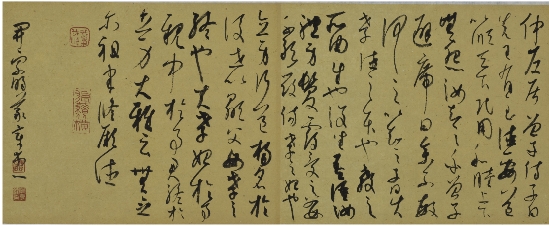 仲尼居曾子侍子曰
先王有至德要道
以順天下民用和睦上下
無怨汝知之乎曾子
避席曰參不敏
何足以知之子曰夫
孝德之本也教之
所由生也復坐吾語汝
身體髮膚受之父母
不敢毀傷孝之始也
立身行道揚名於
後世以顯父母孝之
終也夫孝始於事
親中於事君終於
立身大雅云無念
爾祖聿脩厥德
開宗明義章第一